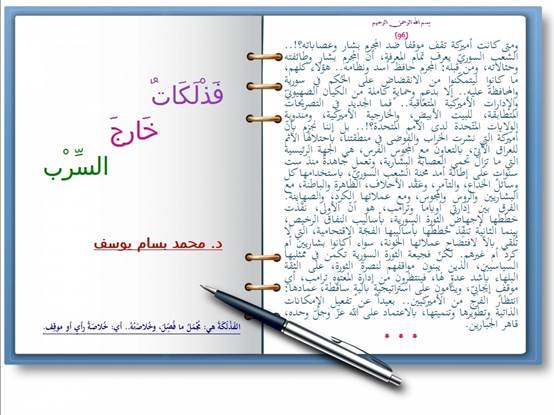 بسم الله الرحمن الرحيم
(96)
ومتى كانت أميركة تقف موقفا ضد المجرم بشار وعصاباته؟!..
الشعب السوريّ يعرف تمام المعرفة، أنّ المجرم بشار وطائفته
وحثالاته، ومن قبله: المجرم حافظ أسد ونظامه.. هؤلاء كلهم،
ما كانوا ليتمكنوا من الانقضاض على الحكم في سورية
والمحافظة عليه.. إلا بدعم وحماية كاملة من الكيان الصهيونيّ
والإدارات الأميركية المتعاقبة.. فما الجديد في التصريحات
المتطابقة، للبيت الأبيض، والخارجية الأميركية، ومندوبة
الولايات المتّحدة لدى الأمم المتّحدة؟!.. بل إننا نجزم بأنّ
أميركة التي نشرت الخراب والفوضى في منطقتنا، باحتلالها الآثم
للعراق الأبيّ، بالتعاون مع المجوس الفرس، هي الجهة الرئيسية
التي ما تزال تحمي العصابة البشارية، وتعمل جاهدةً منذ ست
سنواتٍ على إطالة أمد محنة الشعب السوريّ، باستخدامها كل
وسائل الخداع، والتآمر، وعقد الأحلاف، الظاهرة والباطنة، مع
البشاريين والروس والمجوس، ومع عملائها الكرد، والصهاينة.
الفرق بين إدارتي أوباما وترامب، هو أنّ الأولى، نفّذت
خططها لإجهاض الثورة السورية، بأساليب النفاق الرخيص،
بينما الثانية تنفّذ خططها بأساليبها الفجّة الاقتحامية، التي لا
تلقي بالاً لافتضاح عملائها الخونة، سواء أكانوا بشاريين أم
كرداً أم غيرهم. لكنّ فجيعة الثورة السورية تكمن في ممثّليها
السياسيين، الذين يبنون مواقفهم لنصرة الثورة، على الثقة
البلهاء بأشد عدوٍّ لها، فينتظرون من إدارة المعتوه ترامب، أي
موقفٍ إيجابيّ، ويبنون على استراتيجيةٍ بالية ساقطة، عمادها:
انتظار الفرج من الأميركيين.. بعيداً عن تفعيل الإمكانات
الذاتية وتطويرها وتنميتها، بالاعتماد على الله عزّ وجلّ وحده،
قاهر الجبارين.
* * *
فَذْلَكَاتٌ
خَارِجَ
السِّرْب
د. محمد بسام يوسف
الفَذْلَكَةُ هي: مُجْمَلُ ما فُصِّلَ، وخُلاصَتُهُ.. أي: خُلاصَةُ رأيٍ أو موقِف.